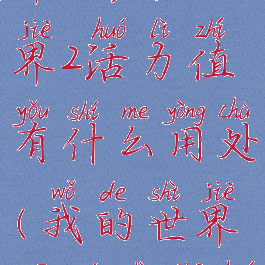 jiè huó lì zhí
界2活力值
yǒu shí me yòng chù
有什么用处
wǒ de shì jiè
(我的世界